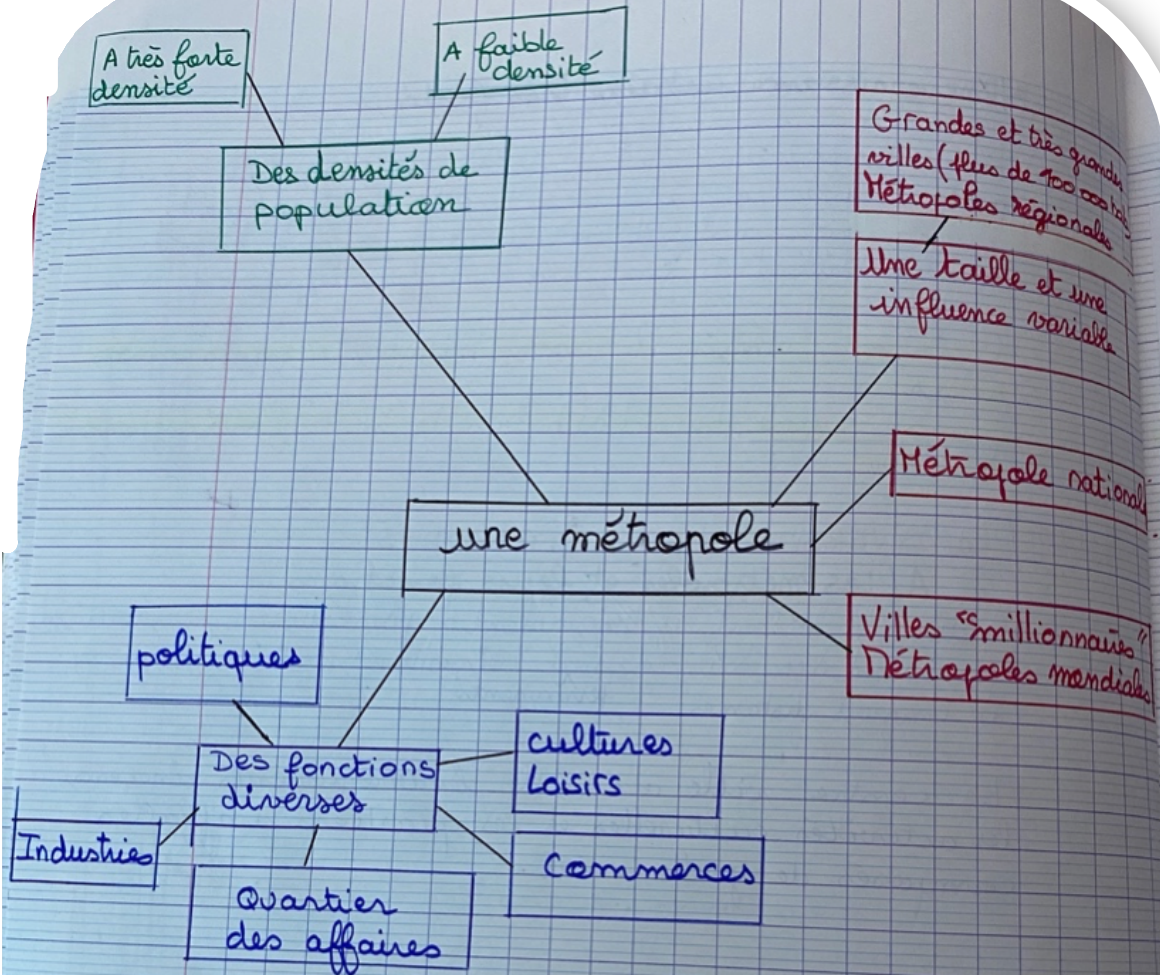 A très forte
densité
A faible
densité
Des densités de
population
Grandes et très grandes
villes (plus de 100 000 hab
Métropoles régionales
Une taille et une
influence variable
Métropole national
une métropole
Villes "millionnaires"
Métropoles mondiales
politiques
Des fonctions
diverses
cultures
Loisirs
Industries
Commerces
Quartier
des affaires